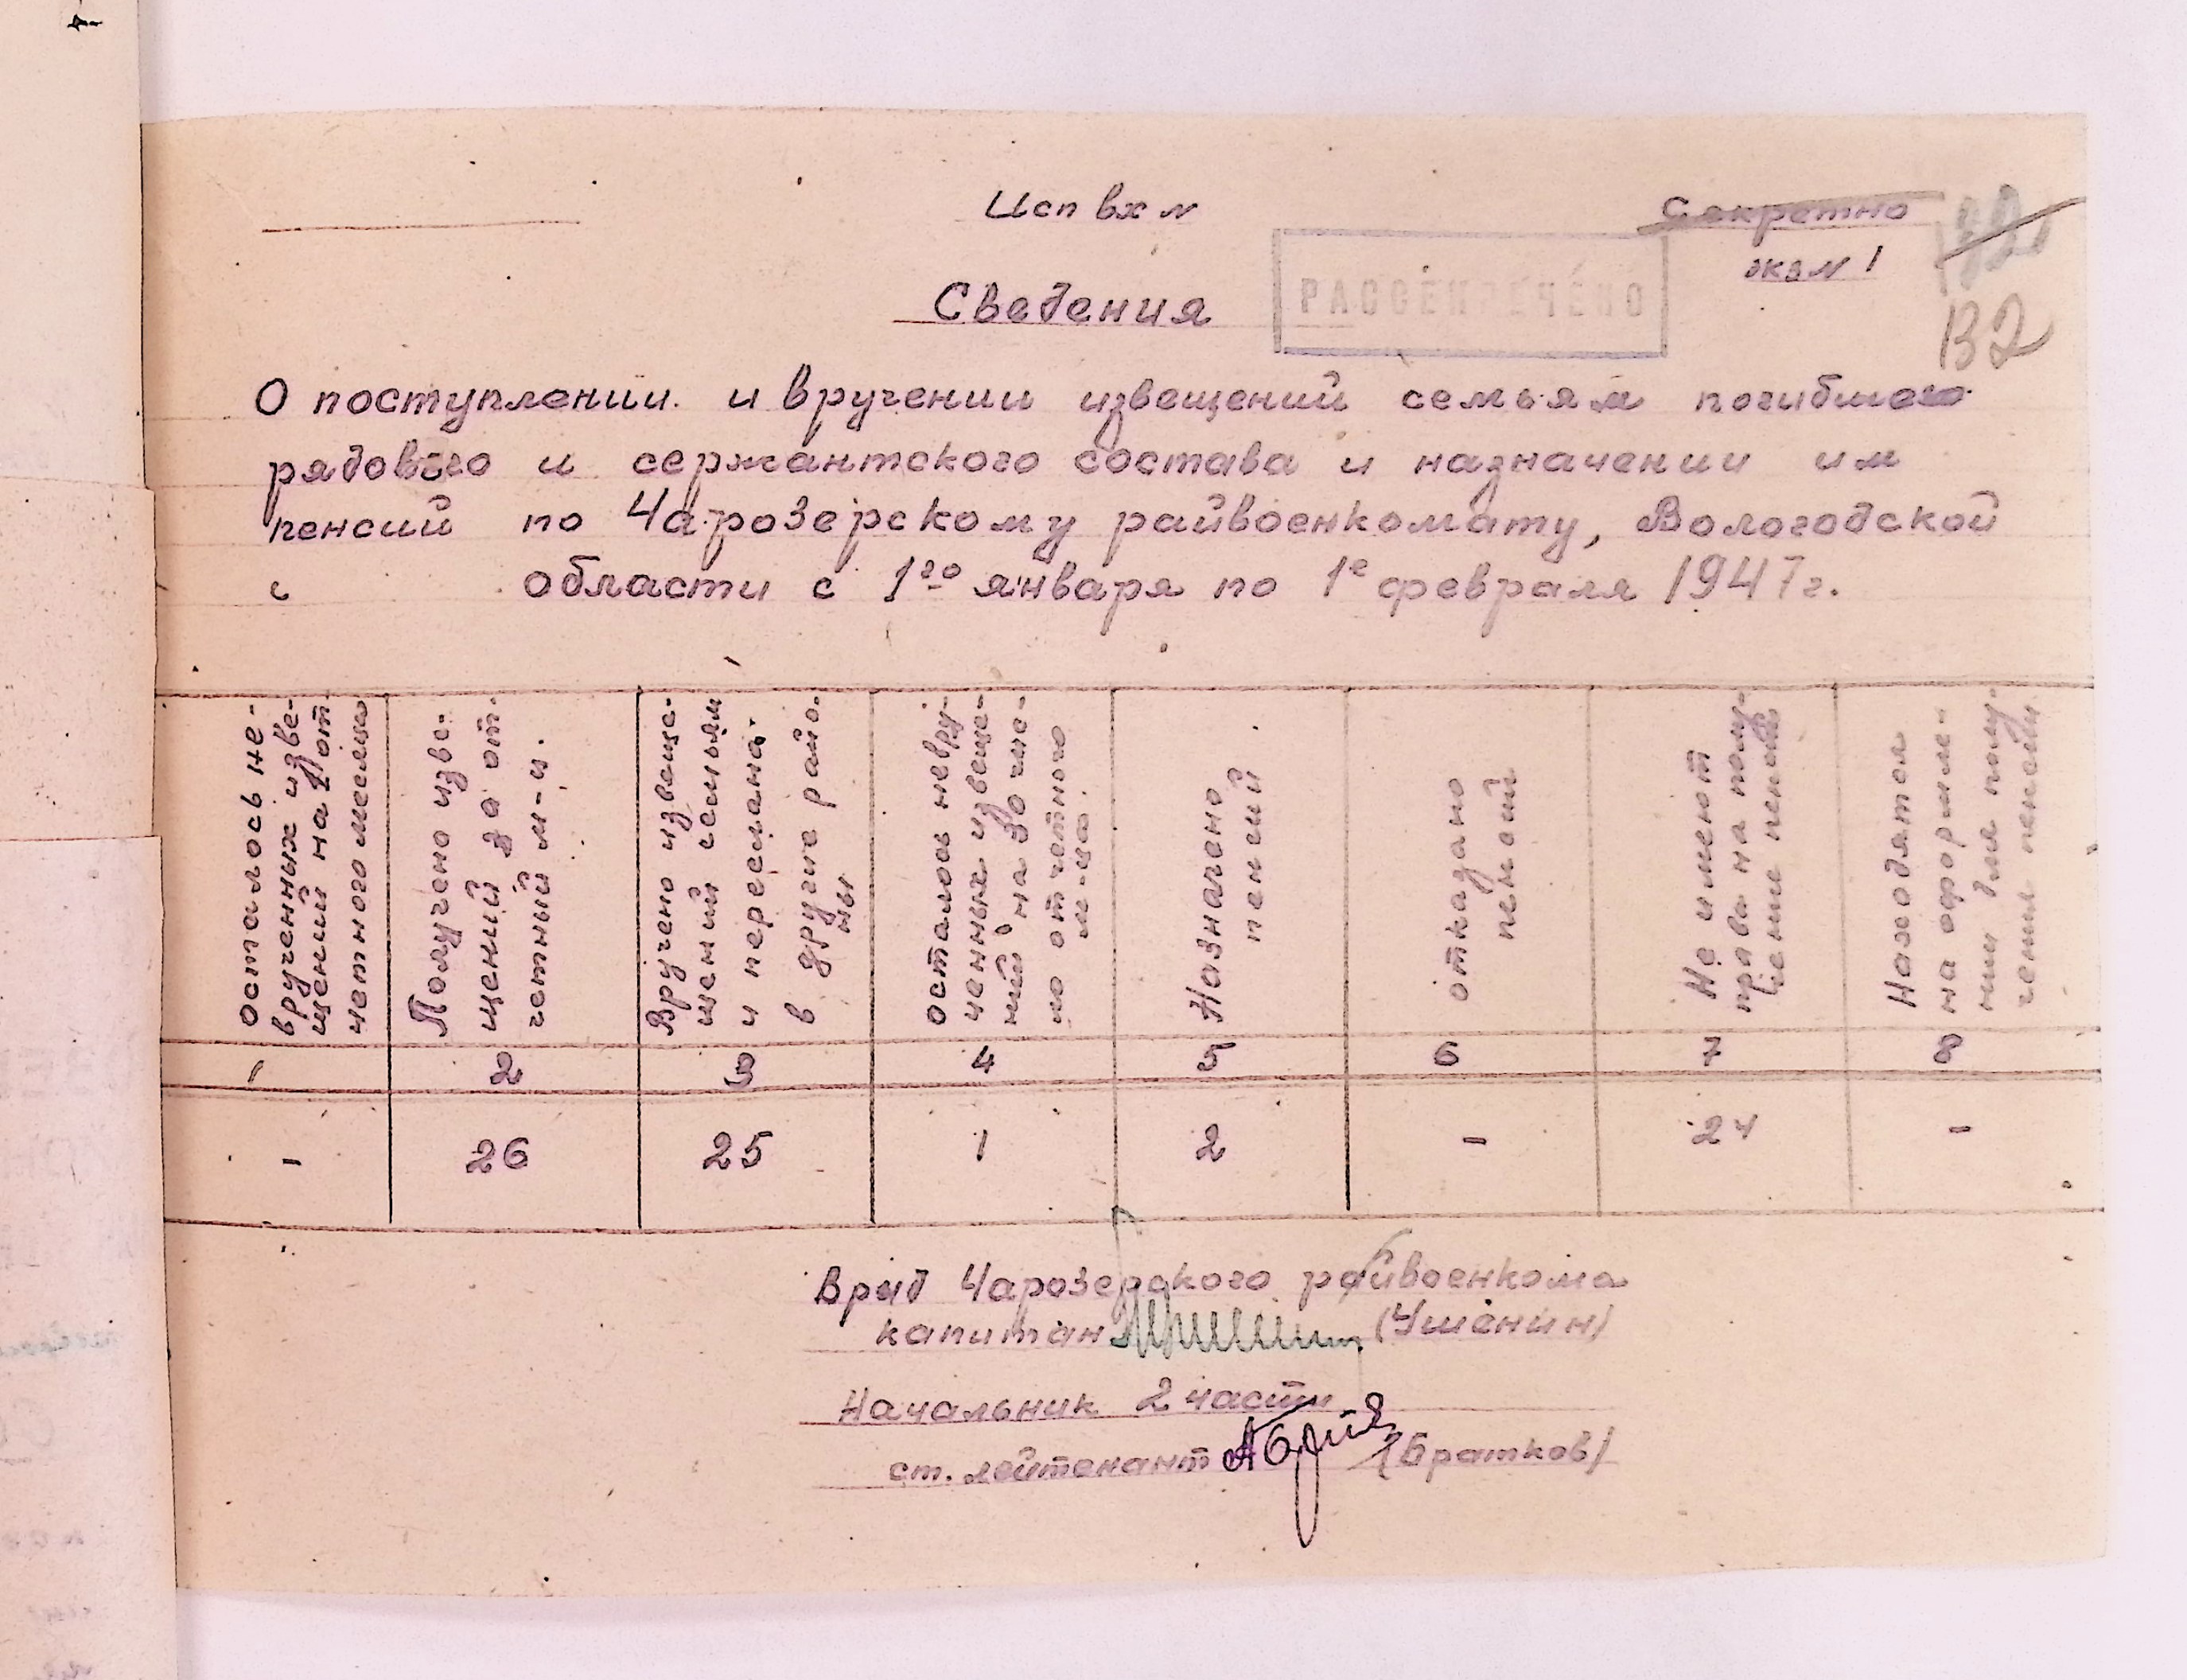 Исп вх №
Секретно
экз № 1
132
Сведения
РАССЕКРЕЧЕНО
О поступлении и вручении извещений семьям погибшего
рядового и сержантского состава и назначении им
пенсий по Чарозерскому райвоенкомату, Вологодской
области с 1го января по 1е февраля 1947г.
Осталось не-
врученных изве-
щений на 1 от
четного месяца
Получено изве-
щений за от-
четный м-ц.
Вручено извеще-
щений семьям
и переслано
в другие райо-
ны
осталось невру-
ченных извеще-
ний на 30 чис-
ло отчетного
м-ца.
Назначено
пенсий
отказано
пенсий
Не имеют
права на полу-
чение пенсий
Находятся
на оформле-
нии для полу-
чения пенсии
1 2 3 4 5 6 7 8
- 26 25 1 2 - 24 -
Врид Чарозерского райвоенкома
капитан (Ушенин)
Начальник 2 части
ст. лейтенант (Братков)